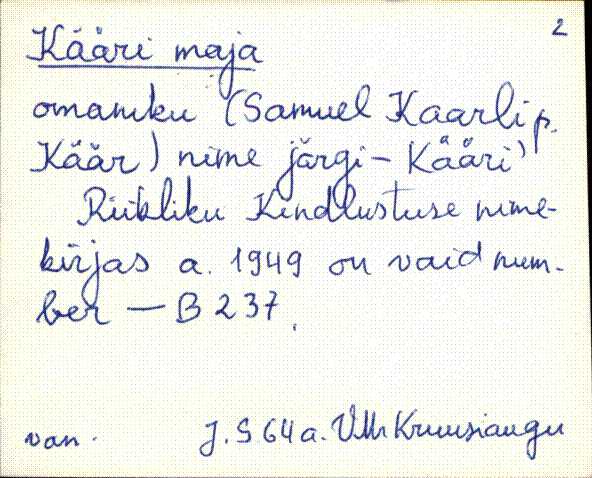 2
Kääri maja
omaniku (Samuel Kaarli p.
Käär) nime järgi - Kääri
Riikliku Kindlustuse nime-
kirjas a. 1949 on vaid num-
ber — B 237.
van. J. S 64 a. Kruusiaugu